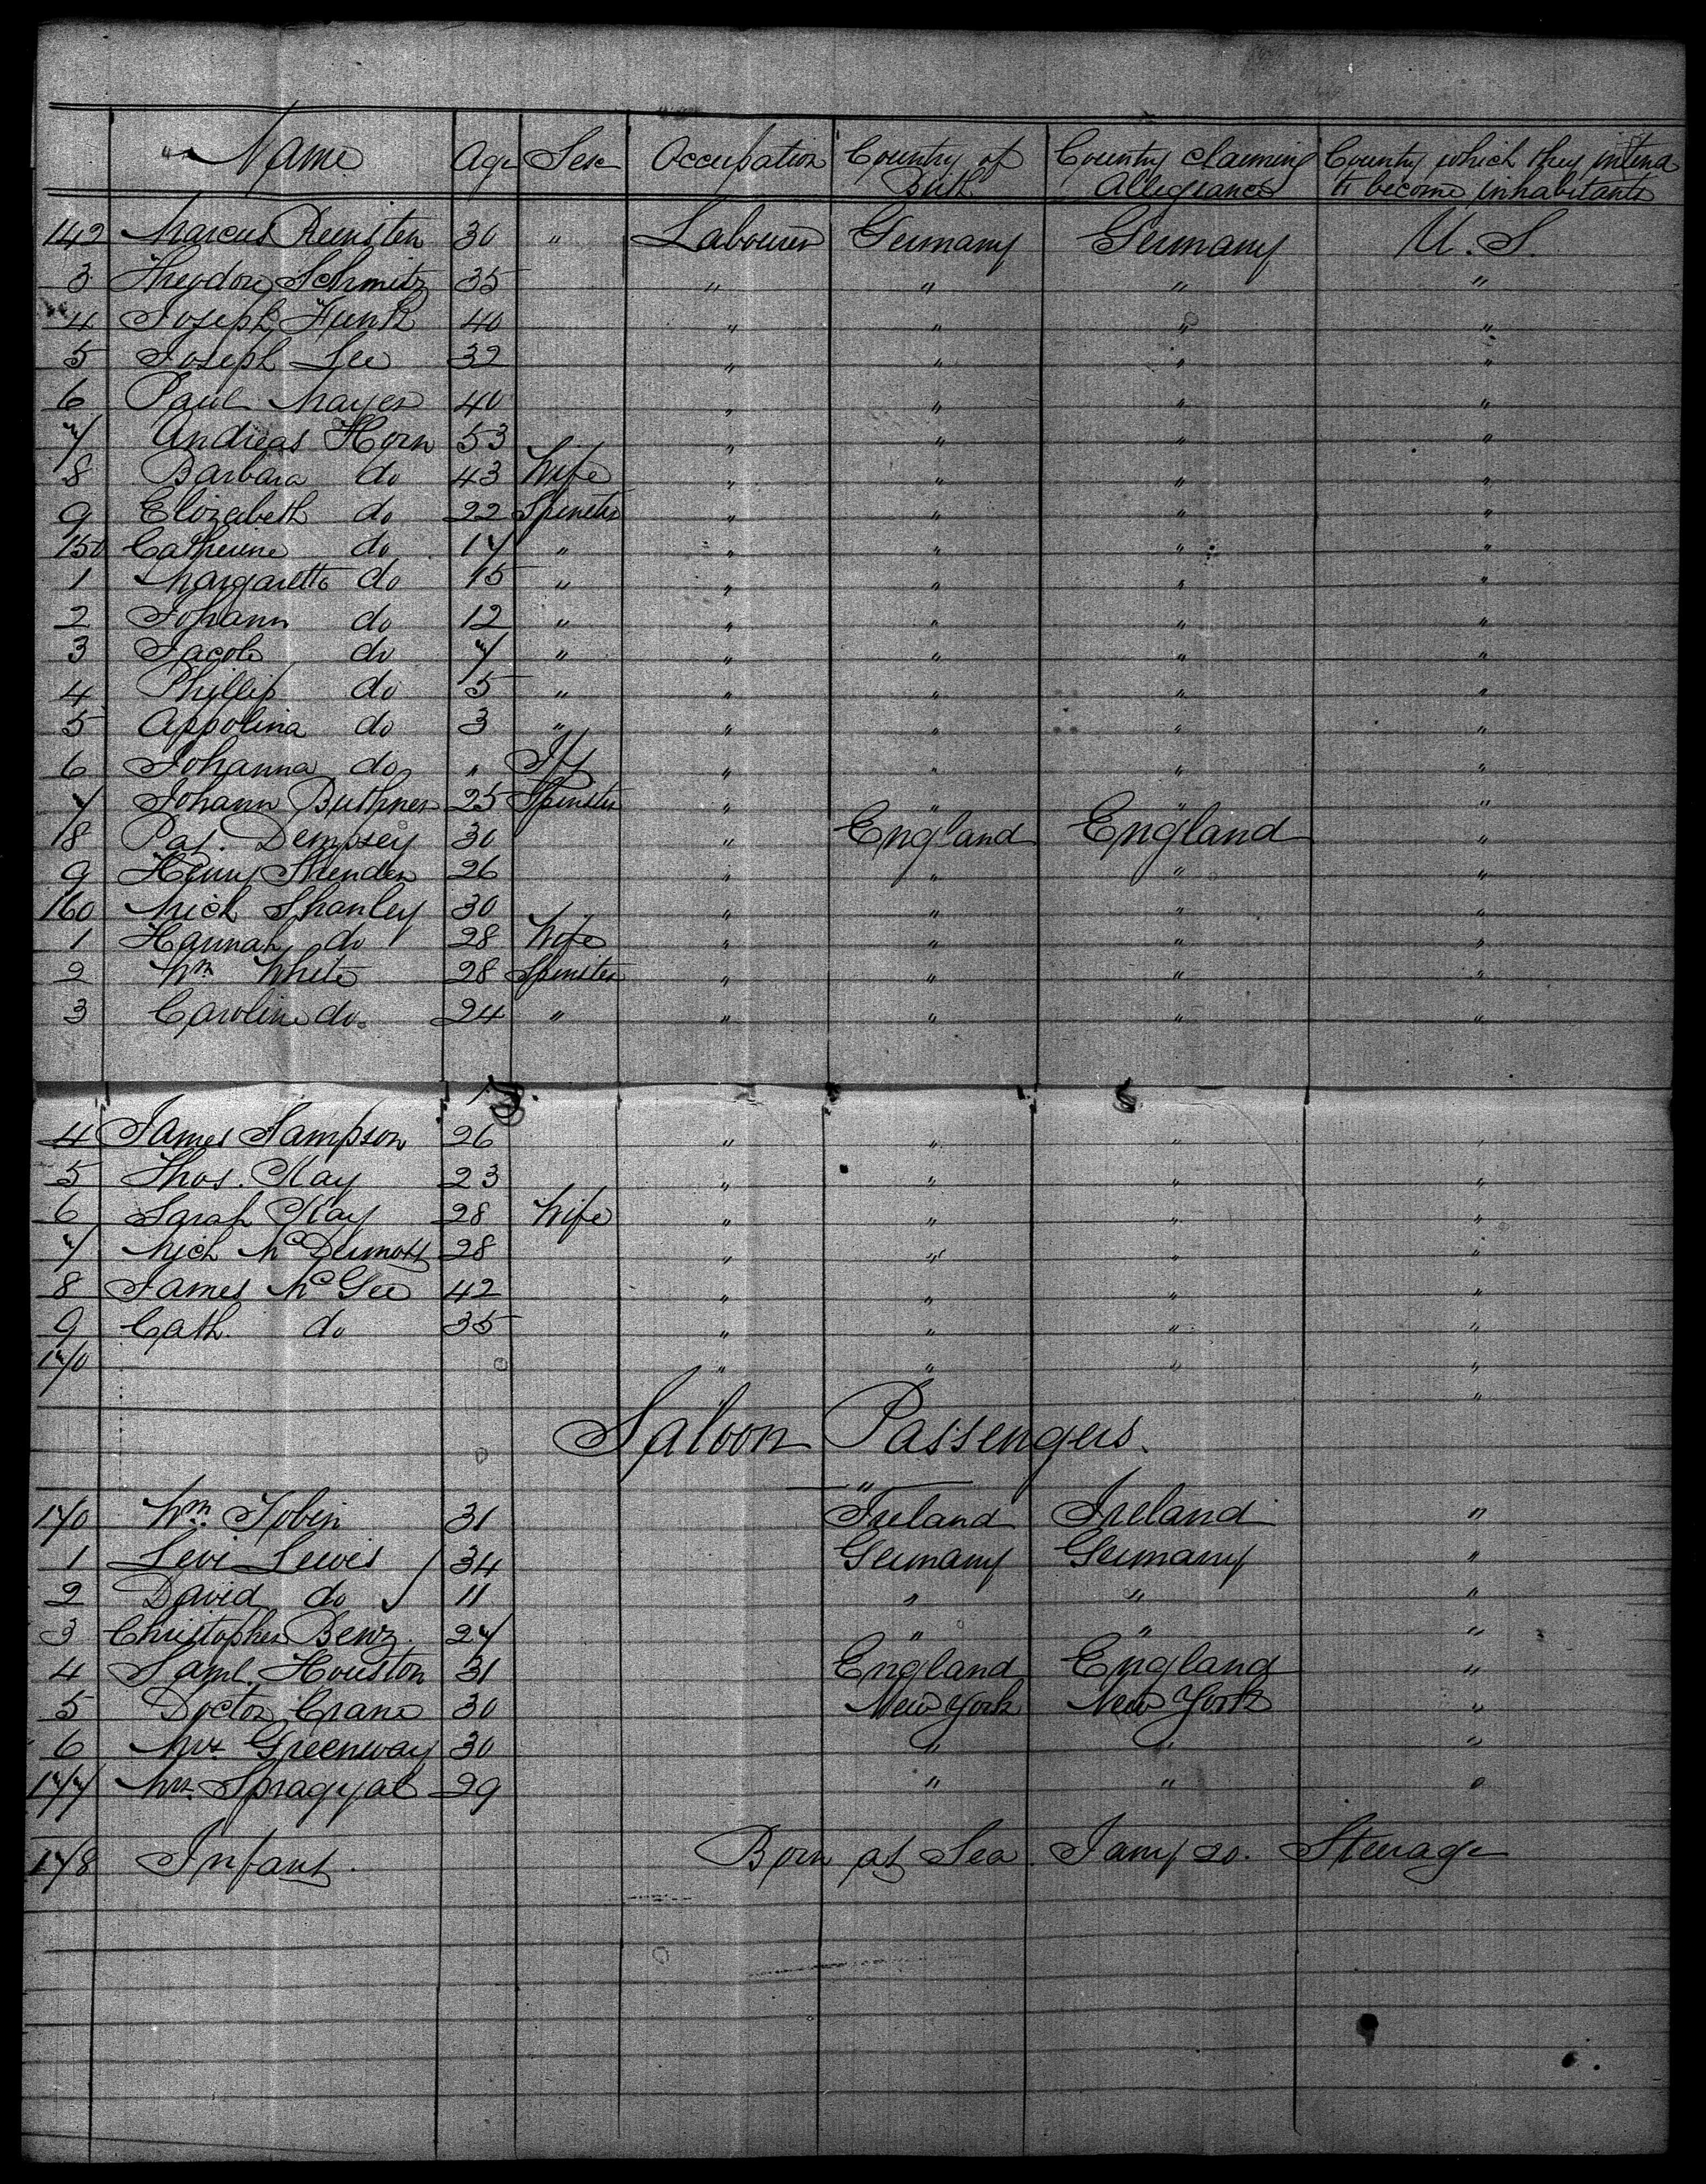 Name Age Sex Occupation Country of Birth Country claiming Allegiance Country which they intend to become inhabitants
142 Marcus 30 " Labourer Germany Germany U. S.
3 Theodore Schmitz 35 " " " "
4 Joseph Funk 40 " " " "
5 Joseph Lee 32 " " " "
6 Paul Mayer 40 " " " "
7 Andreas Horn 53 " " " "
8 Barbara do 43 Wife " " " "
9 Elizabeth do 22 Spinster " " " "
150 Catherine do 17 " " " " "
1 Margaretta do 15 " " " " "
2 Johann do 12 " " " " "
3 Jacob do 7 " " " " "
4 Phillip do 5 " " " " "
5 Appolina do 3 " " " " "
6 Johanna do " " " " "
7 Johann Buthner 25 Spinster " " " "
18 Pat. Dempsey 30 " England England "
9 Henry 26 " " " "
160 Mich Shanley 30 " " " "
1 Hannah do 28 Wife " " " "
2 Wm White 28 Spinster " " " "
3 Caroline do. 24 " " " " "
4 James Sampson 26 " " " "
5 Thos. Kay 23 " " " "
6 Sarah Kay 28 Wife " " " "
7 Mich McDermott 28 " " " "
8 James McGee 42 " " " "
9 Cath. do 35 " " " "
170 " " " "
"
Saloon Passengers.
"
170 Wm. Tobin 31 Ireland Ireland "
1 Levi Lewis 34 Germany Germany "
2 David do 11 " " "
3 Christopher Benz. 27 " " "
4 Saml. Houston 31 England England "
5 Doctor Crane 30 New York New York "
6 Mrs Greenway 30 " " "
177 29 " " "
178 Infant. Born at Sea Jany 20. Steerage